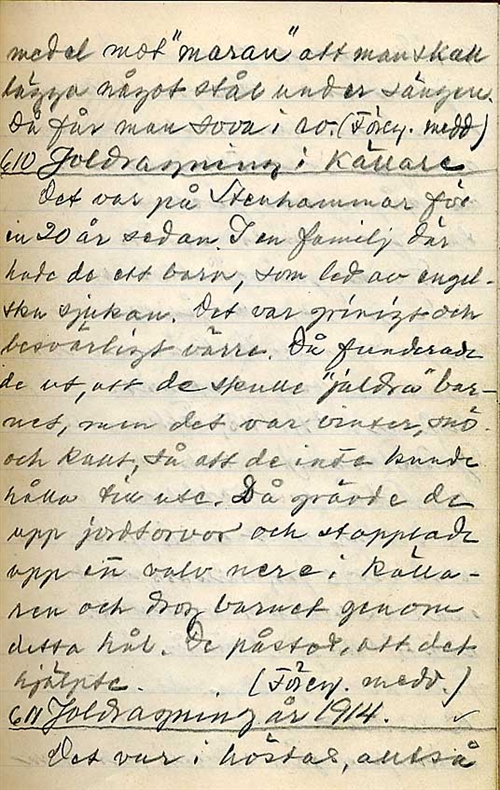 medel mot "maran" att man skall
lägga något stål under sängen.
Då får man sova i ro. (Förcy. medd)
610 Joldragning i Källare
Det var på Stenhammar för
en 20 år sedan. I en familj där
hade de ett barn, som led av engel-
ska sjukan. Det var grinigt och
besvärligt värre. Då funderade
de ut, att de skulle "jäldra" bar-
net, men det var vinter, snö
och kallt, så att de inte kunde
hålla till ute. Då grävde de
upp jordtorvor och stapplade
upp en valv nere i källa-
ren och drog barnet genom
detta hål. De påstod, att det
hjälpte. (Förcy. medd.)
611 Joldragning år 1914.
Det var i höstas, alltså